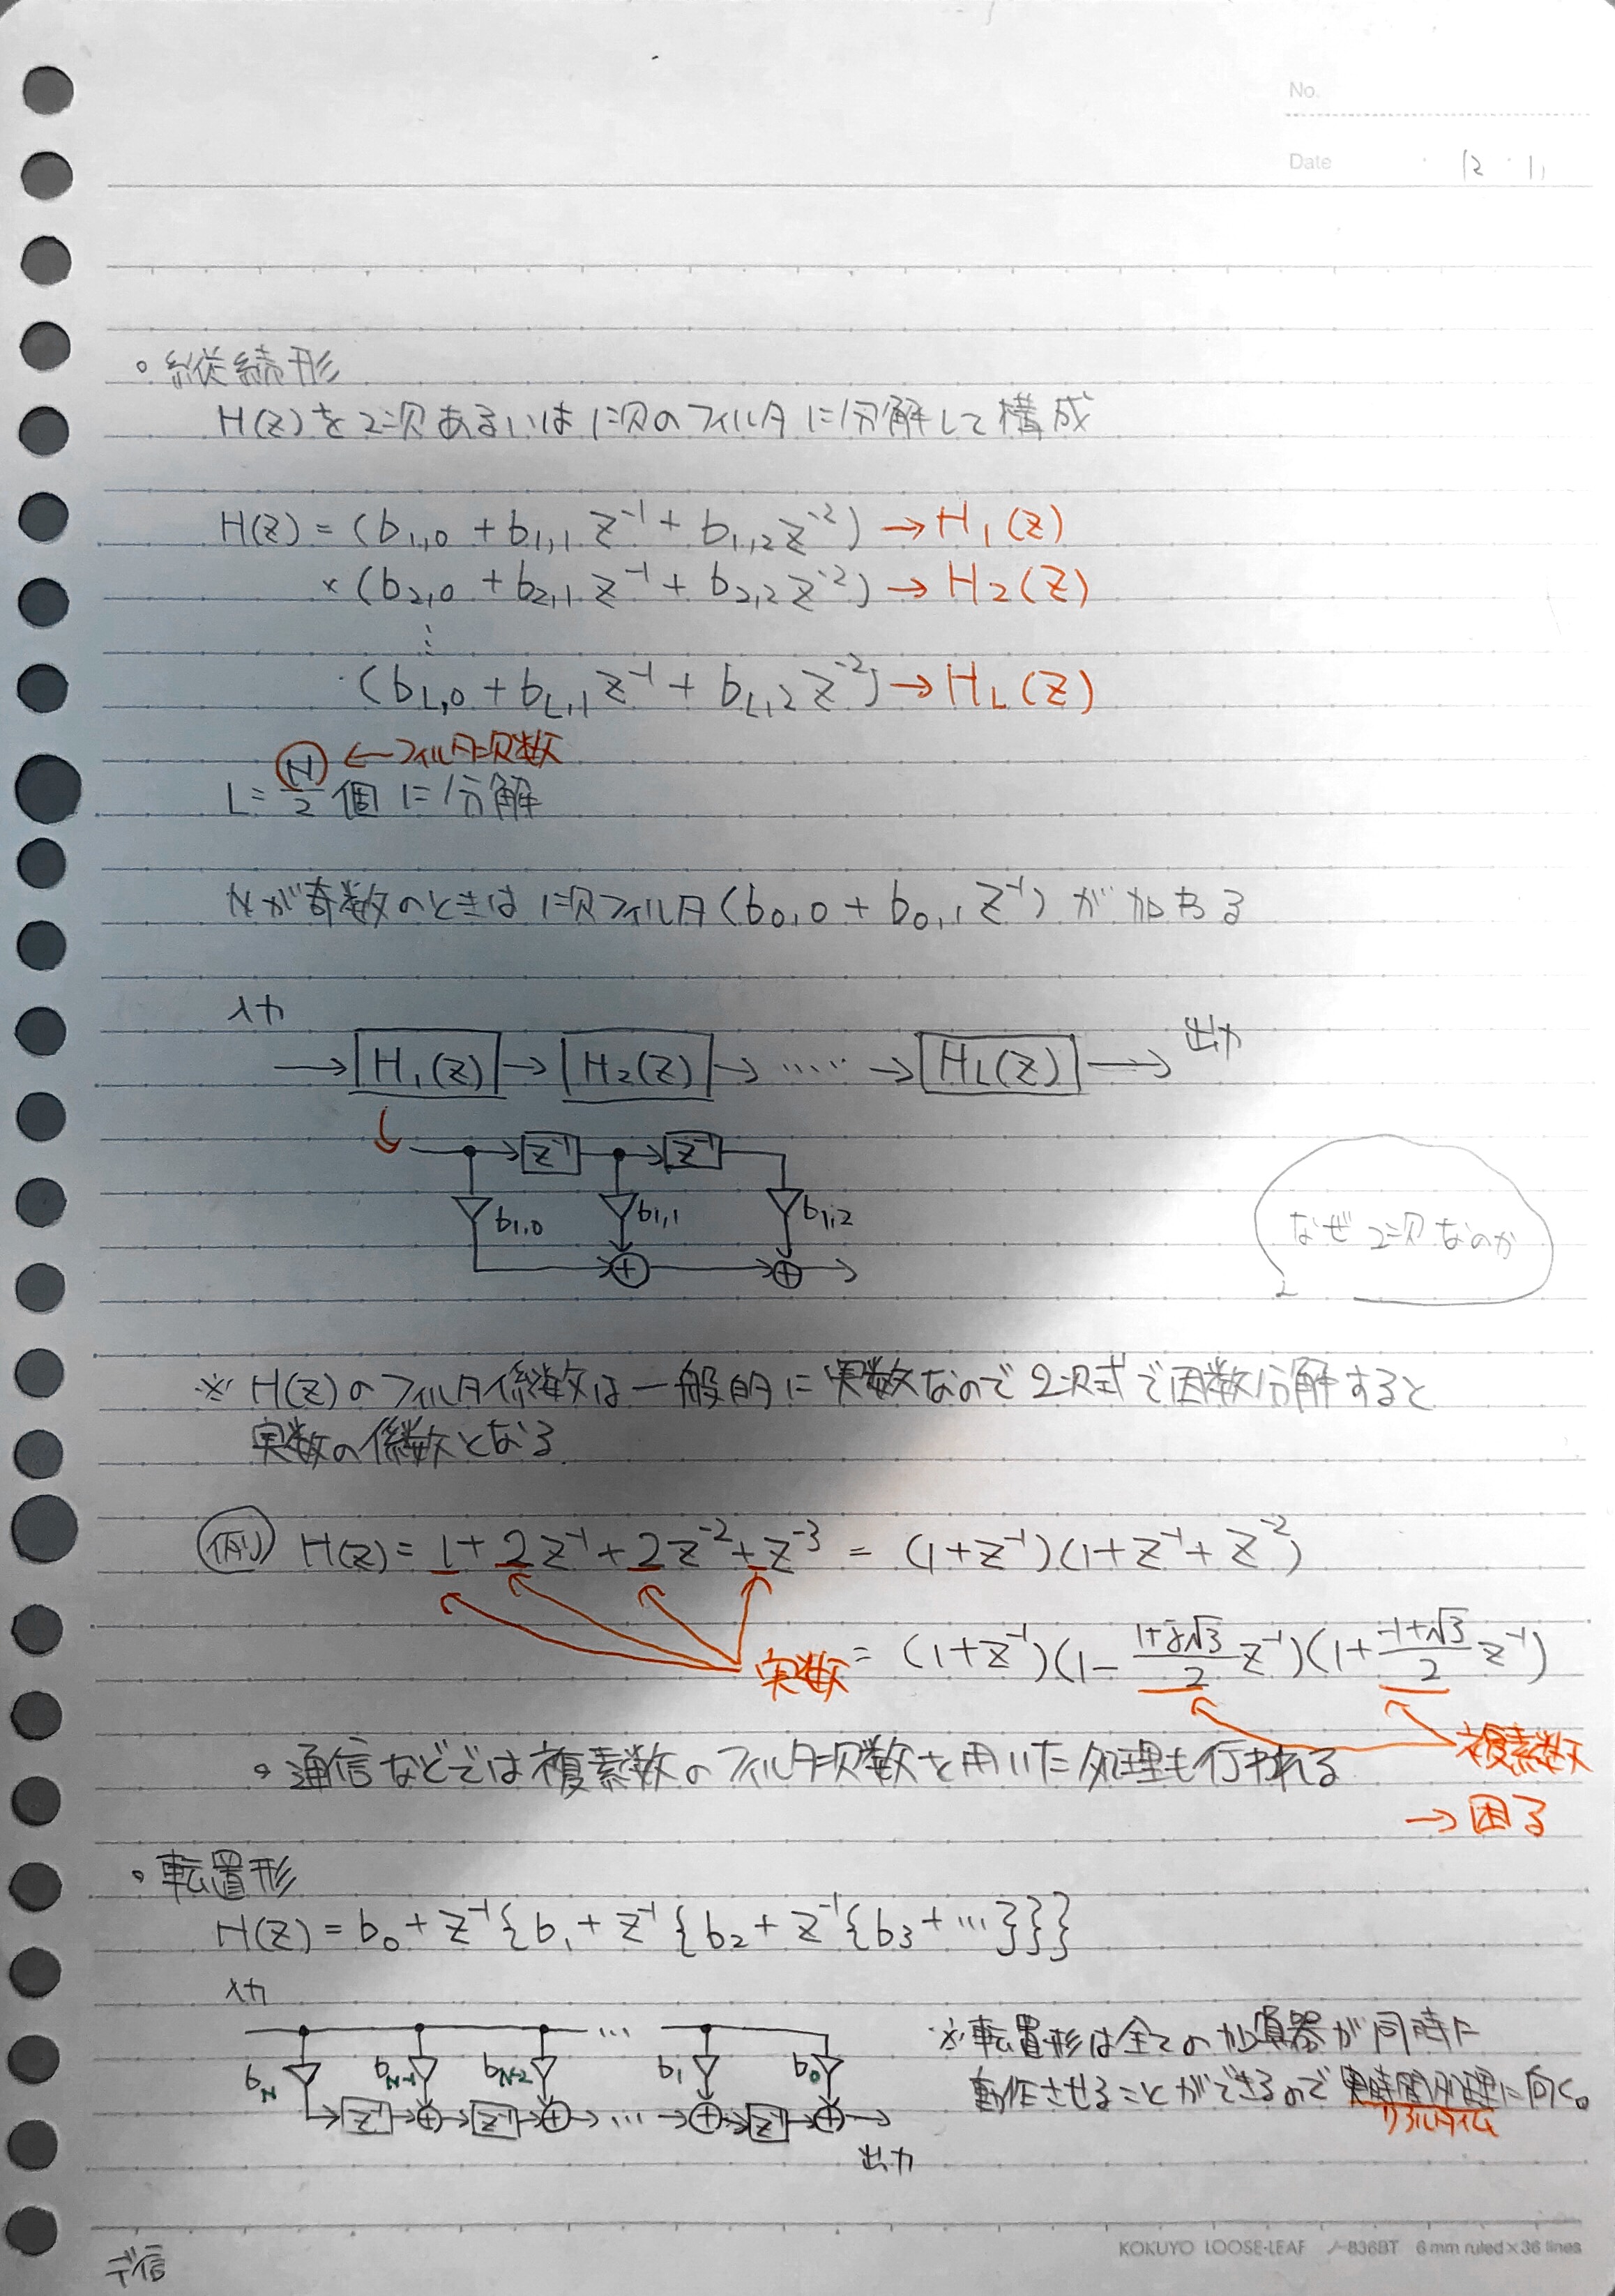 No.
Date 12 · 11
。縦続形
H(z)を2次あるいは1次のフィルタに分解して構成
H(z) = (b1,0 + b1,1 z⁻¹ + b1,2 z⁻²) → H1(z)
×(b2,0 + b2,1 z⁻¹ + b2,2 z⁻²) → H2(z)
⋮
·(bL,0 + bL,1 z⁻¹ + bL,2 z⁻²) → HL(z)
←フィルタ次数
L=N/2 個に分解
Nが奇数のときは1次フィルタ(b0,0 + b0,1 z⁻¹)が加わる
入力
→ H1(z) → H2(z) → ..... → HL(z) → 出力
z⁻¹ z⁻¹
b1,0 b1,1 b1,2
+ +
なぜ2次なのか
※ H(z)のフィルタ係数は一般的に実数なので2次式で因数分解すると
実数の係数となる
例) H(z) = 1 + 2z⁻¹ + 2z⁻² + z⁻³ = (1+z⁻¹)(1+z⁻¹+z⁻²)
実数 = (1+z⁻¹)(1- 1+j√3/2 z⁻¹)(1+ -1+√3/2 z⁻¹)
複素数
。通信などでは複素数のフィルタ次数を用いた処理も行われる
→ 困る
。転置形
H(z) = b0 + z⁻¹{b1 + z⁻¹{b2 + z⁻¹{b3 + ...}}}
入力
...
bN bN-1 bN-2 b1 b0
z⁻¹ + z⁻¹ + ... + z⁻¹ +
出力
※転置形は全ての加算器が同時に
動作させることができるので実時間処理に向く。
リアルタイム
デ信
KOKUYO LOOSE-LEAF ノ-836BT 6 mm ruled×36 lines